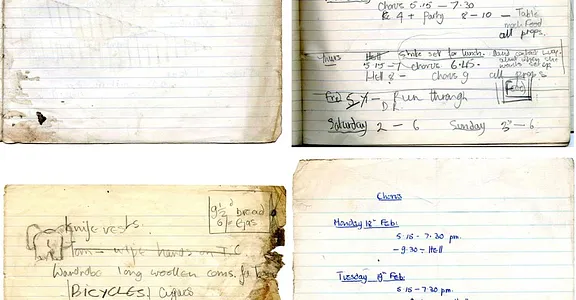 Chorus 5.15 – 7.30
Sc 4 + Party 8 – 10 – Table
mock food
all props.
Thurs
Strike set for lunch.
5.15 – 7 chorus 6.45.
Hell 8 – Chorus 9 all props
Food
Run through
Saturday 2 – 6 Sunday 3 – 6
9½d bread
6/= eggs
Knife vests.
Tom – wipe hands on T.C
Wardrobe long woollen coms. for
BICYCLES / Cigars
Chorus
Monday 18th Feb:
5.15 – 7.30 pm.
– 9.30 – Hell
Tuesday 19th Feb:
5.15 – 7.30 pm.